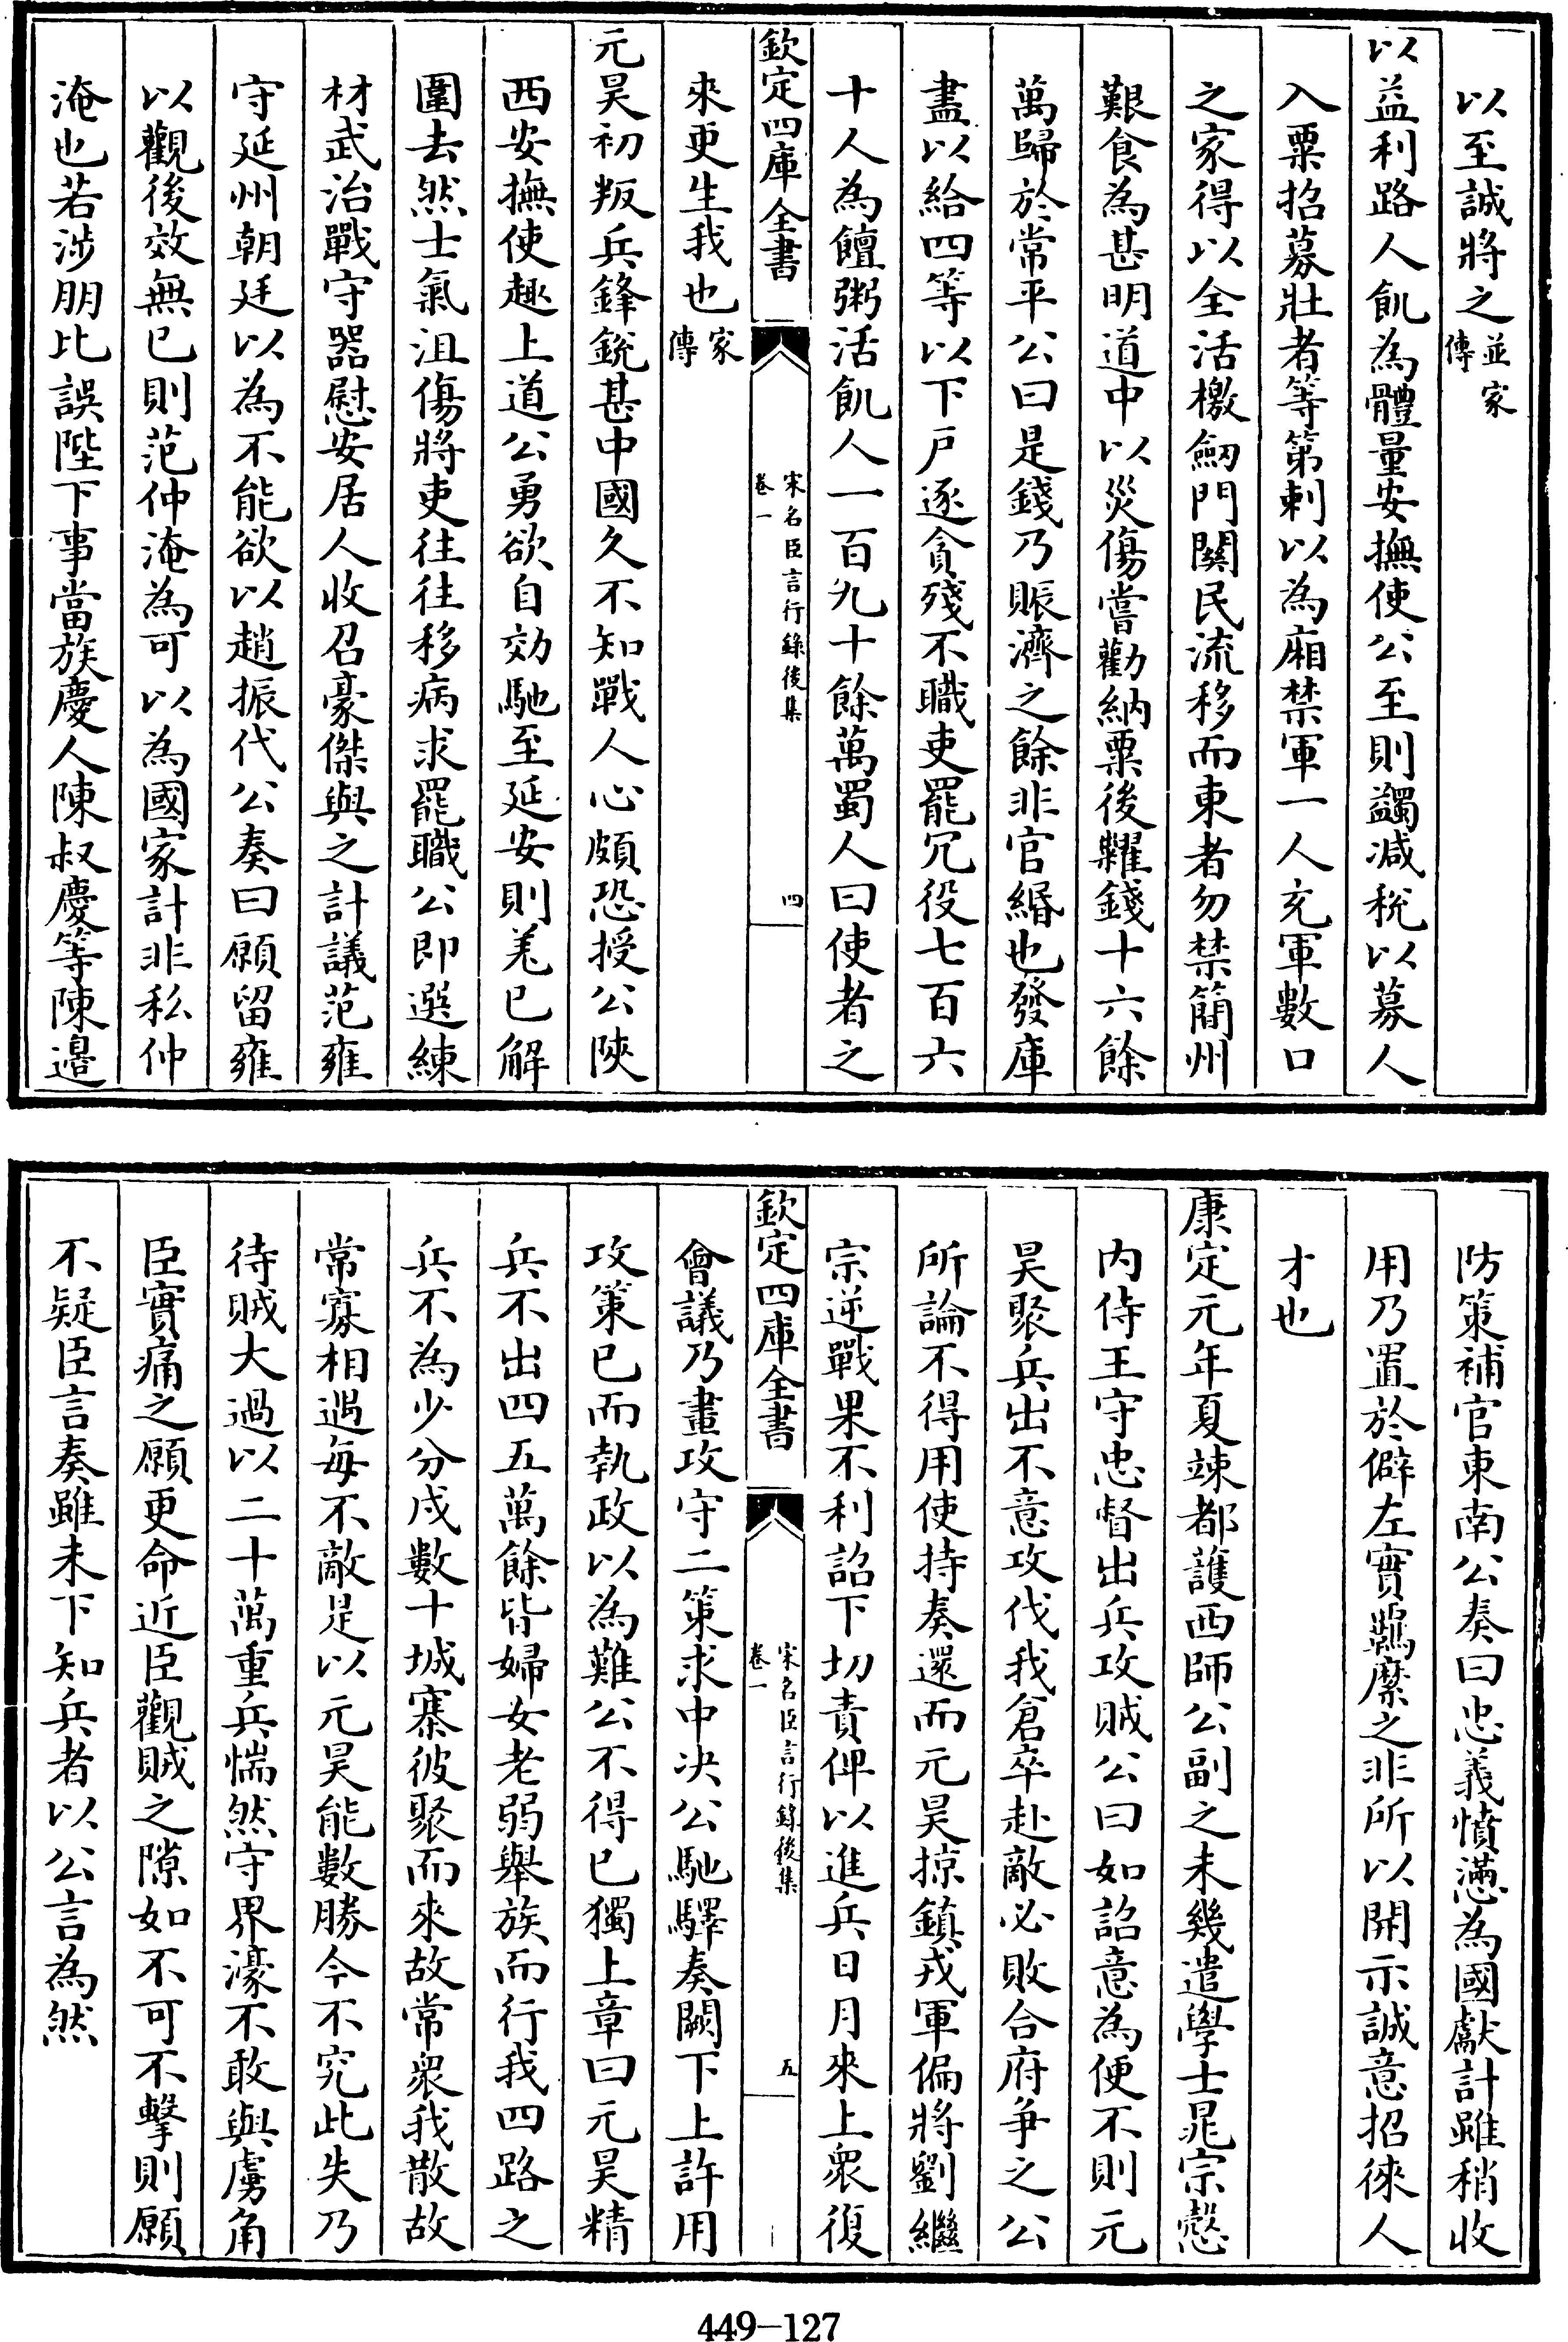 以至誠將之並家傳
以益利路人飢為體量安撫使公至則蠲減稅以募人
入粟招募壯者等第刺以為廂禁軍一人充軍數口
之家得以全活檄劒門關民流移而東者勿禁簡州
艱食為甚明道中以災傷嘗勸納粟後糶錢十六餘
萬歸於常平公曰是錢乃賑濟之餘非官緡也發庫
盡以給四等以下户逐貪殘不職吏罷冗役七百六
十人為饘粥活飢人一百九十餘萬蜀人曰使者之
欽定四庫全書 宋名臣言行錄後集 卷一 四
來更生我也家傳
元昊初叛兵鋒銳甚中國久不知戰人心頗恐授公陝
西安撫使趣上道公勇欲自効馳至延安則羌已解
圍去然士氣沮傷將吏往往移病求罷職公即選練
材武治戰守器慰安居人收召豪傑與之計議范雍
守延州朝廷以為不能欲以趙振代公奏曰願留雍
以觀後效無已則范仲淹為可以為國家計非私仲
淹也若涉朋比誤陛下事當族慶人陳叔慶等陳邉
防策補官東南公奏曰忠義憤懣為國獻計雖稍收
用乃置於僻左實羈縻之非所以開示誠意招徠人
才也
康定元年夏竦都護西師公副之未幾遣學士晁宗慤
内侍王守忠督出兵攻賊公曰如詔意為便不則元
昊聚兵出不意攻伐我倉卒赴敵必敗合府爭之公
所論不得用使持奏還而元昊掠鎮戎軍偏將劉繼
宗逆戰果不利詔下切責俾以進兵日月來上衆復
欽定四庫全書 宋名臣言行錄後集 卷一 五
會議乃畫攻守二策求中决公馳驛奏闕下上許用
攻策已而執政以為難公不得已獨上章曰元昊精
兵不出四五萬餘皆婦女老弱舉族而行我四路之
兵不為少分戍數十城寨彼聚而來故常衆我散故
常寡相遇每不敵是以元昊能數勝今不究此失乃
待賊大過以二十萬重兵惴然守界濠不敢與虜角
臣實痛之願更命近臣觀賊之隙如不可不擊則願
不疑臣言奏雖未下知兵者以公言為然
449-127